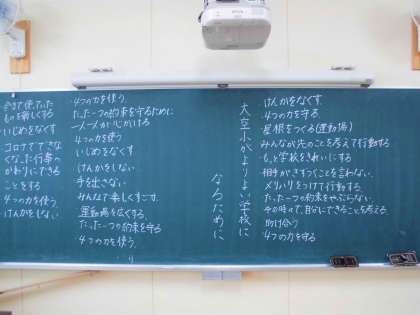 大空小がよりよい学校に
なるために
けんかをなくす
4つの力を守る
屋根をつくる(運動場)
みんなが先のことを考えて行動する
もっと学校をきれいにする
相手がきずつくことを言わない
メリハリをつけて行動する
たった一つの約束をやぶらない
その時々で、自分にできることを考える
助け合う
4つの力を守る
4つの力を使う
たった一つの約束を守るために
一人一人が心がける
4つの力を使う
いじめをなくす
けんかをしない
手を出さない
みんなで楽しくすごす
運動場を広くする
たった一つの約束を守る
4つの力を使う
いじめをなくす
コロナでできな
くなった行事の
かわりにできる
ことをする
4つの力を使う
けんかをしない